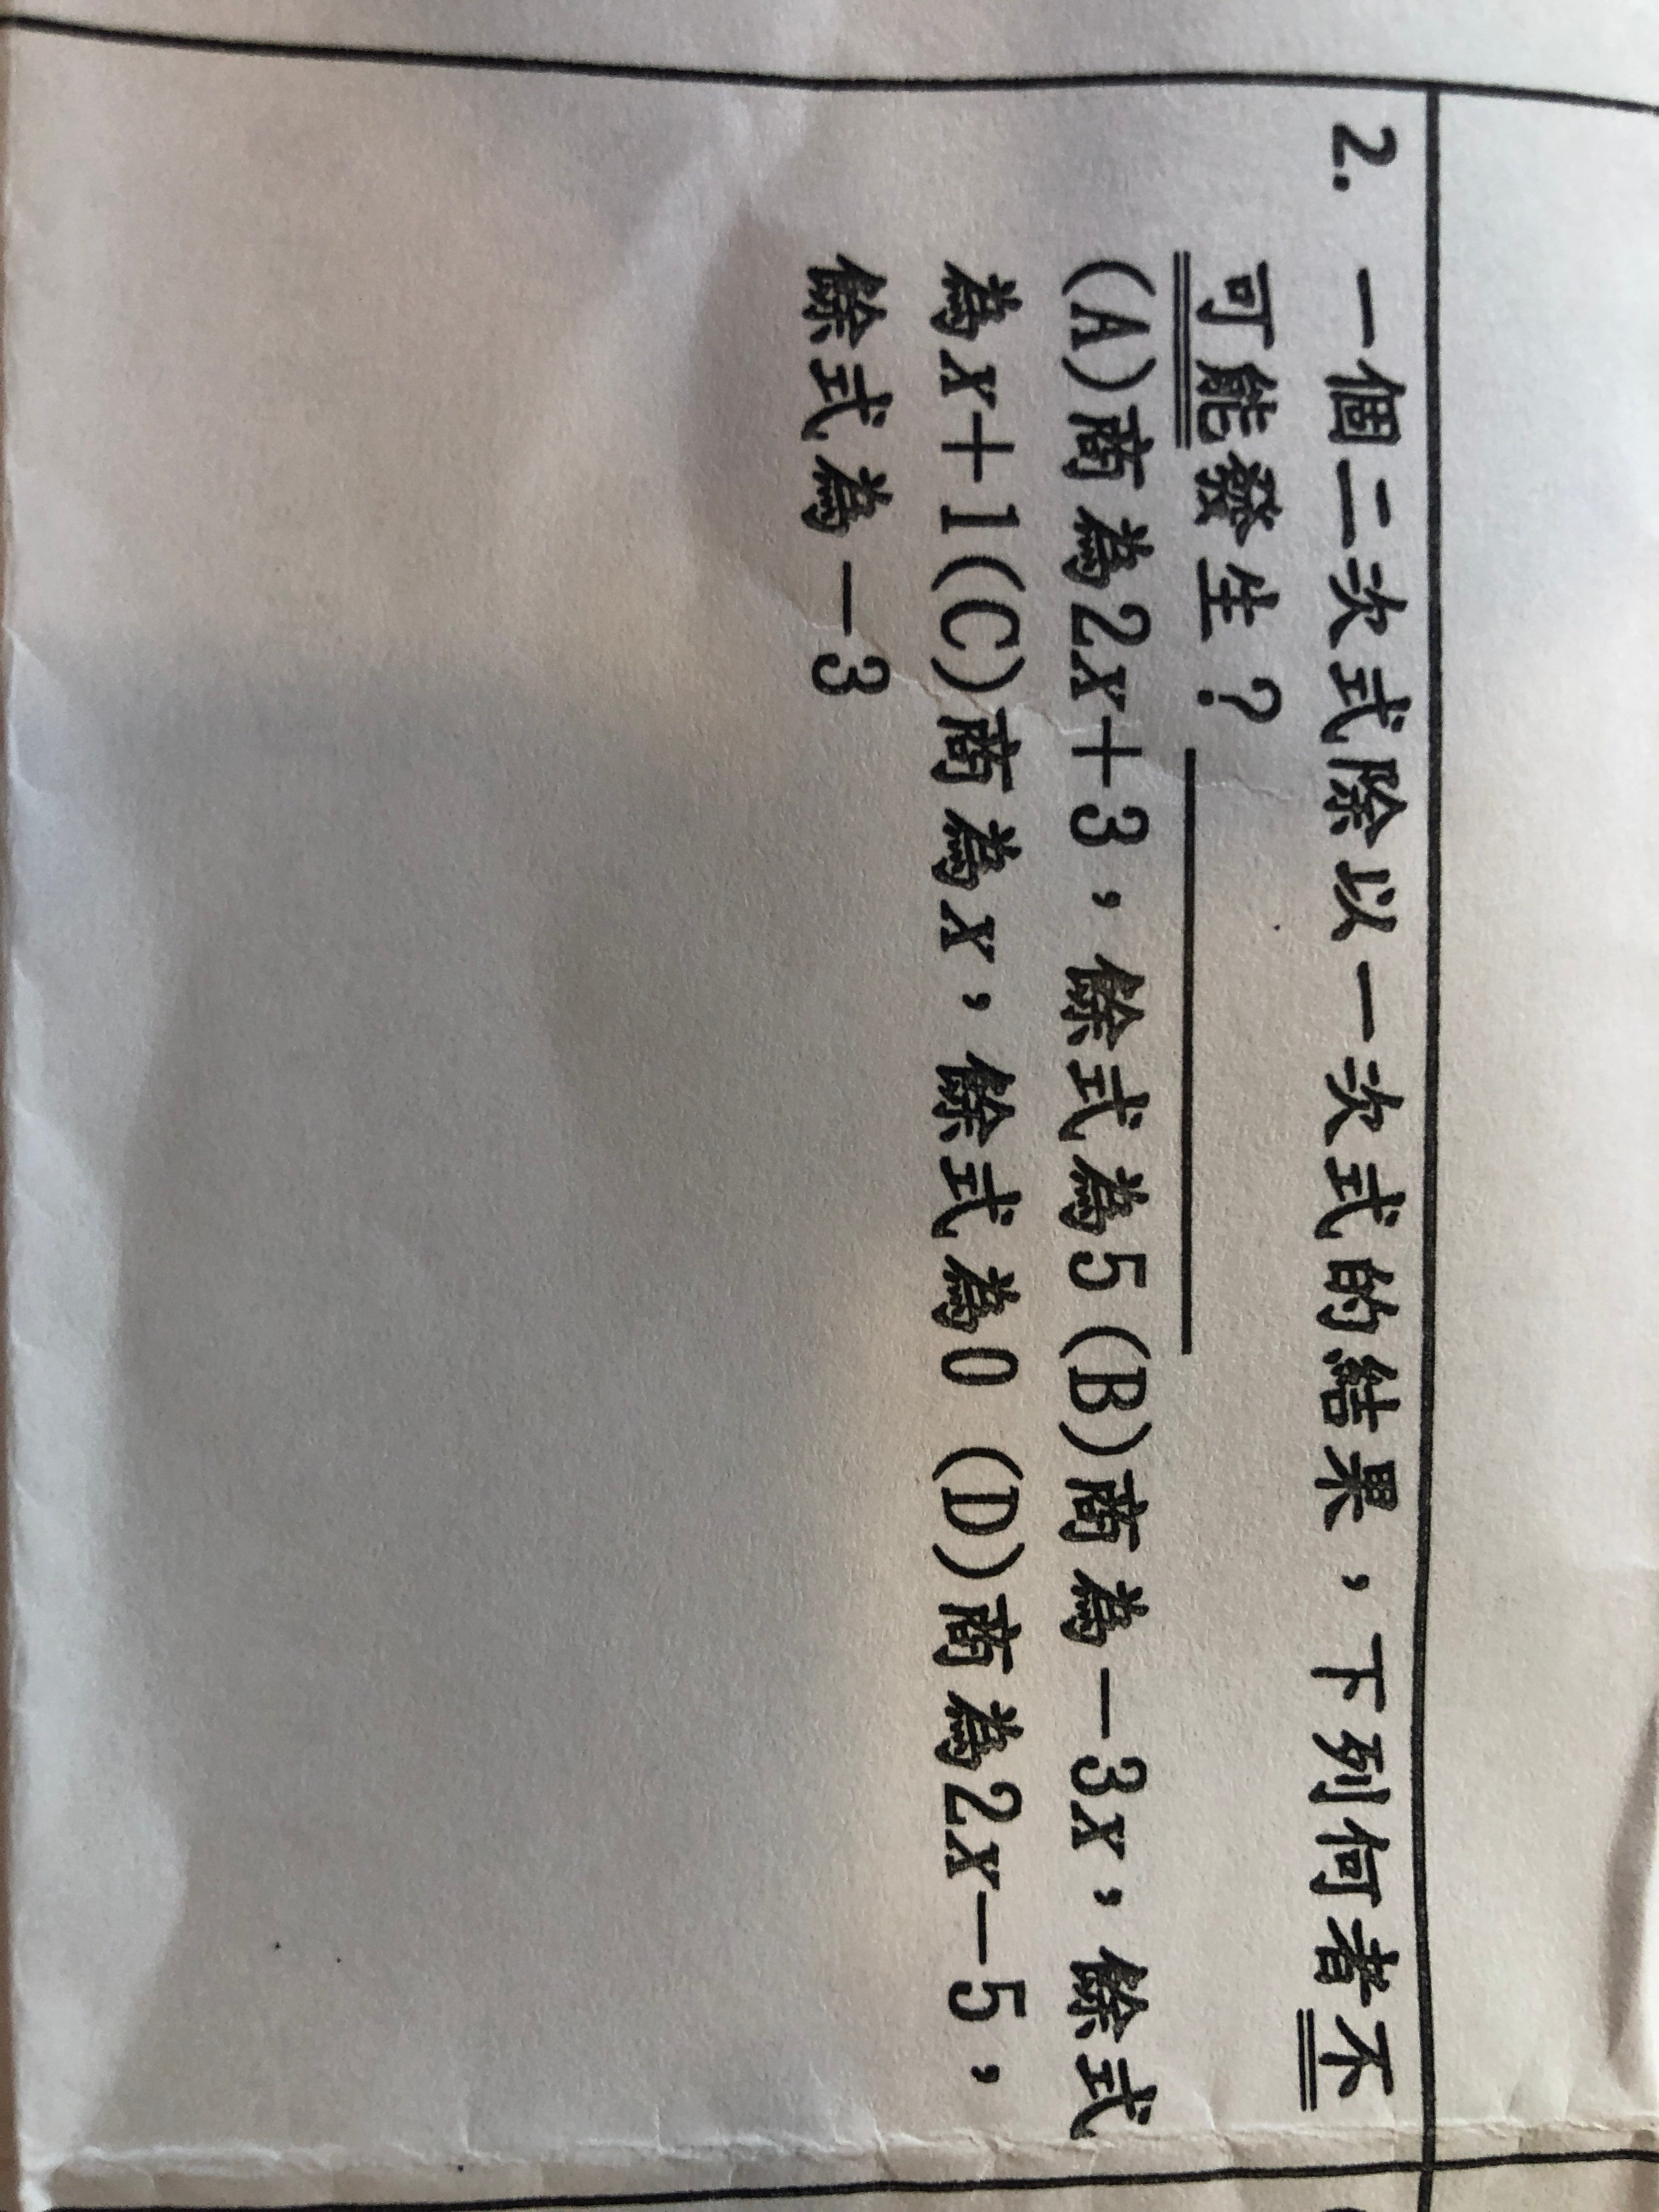 2. 一個二次式除以一次式的結果，下列何者不
可能發生？
(A)商為2x+3，餘式為5 (B)商為−3x，餘式
為x+1(C)商為x，餘式為0 (D)商為2x−5，
餘式為−3